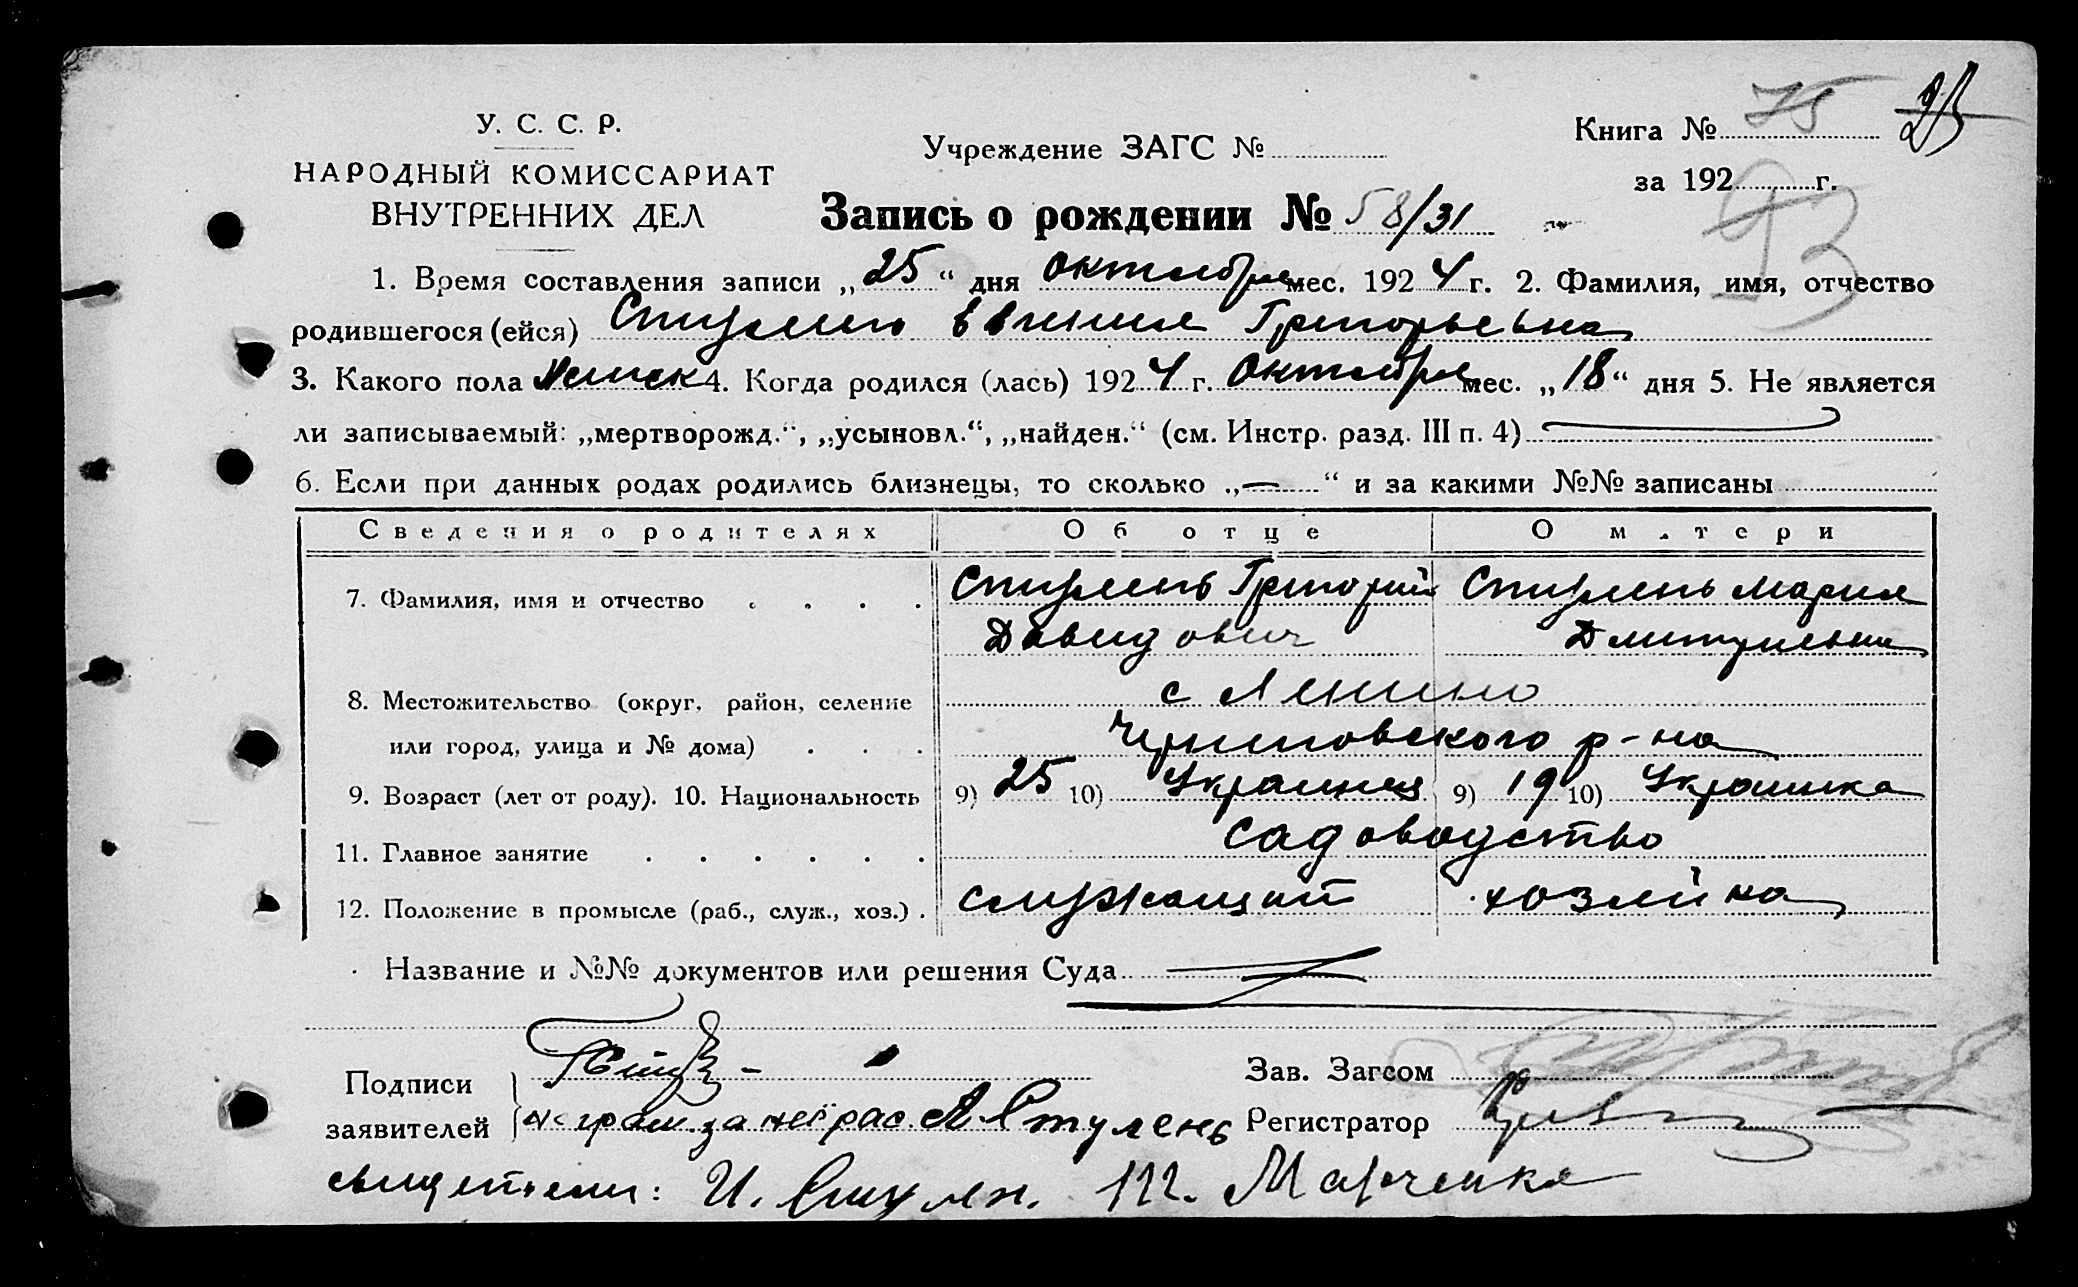 У. С. С. Р.
НАРОДНЫЙ КОМИССАРИАТ
ВНУТРЕННИХ ДЕЛ
Учреждение ЗАГС №
Книга № 75
за 192 г.
93
Запись о рождении № 58/31
1. Время составления записи „25“ дня октября мес. 1924 г. 2. Фамилия, имя, отчество
родившегося (ейся) Стулень Евгения Григорьевна
3. Какого пола Женск 4. Когда родился (лась) 1924 г. Октября мес. „18“ дня 5. Не является
ли записываемый: „мертворожд.“, „усыновл.“, „найден.“ (см. Инстр. разд. III п. 4)
6. Если при данных родах родились близнецы, то сколько „—“ и за какими №№ записаны
Сведения о родителях Об отце О м.тери
7. Фамилия, имя и отчество . . . . Стулень Григорий Стулень Мария
Давидович Дмитриевна
8. Местожительство (округ, район, селение с Ленино
или город, улица и № дома) . . . района р-на
9. Возраст (лет от роду). 10. Национальность 9) 25 10) Украинец 9) 19 10) Украинка
11. Главное занятие . . . . . . садоводство
12. Положение в промысле (раб., служ., хоз.) . служащий хозяйка
Название и №№ документов или решения Суда
Подписи
заявителей
неграм. за неё рас. А Стулень
Зав. Загсом
Регистратор
свидетели: И. Стулен. М. Марченко